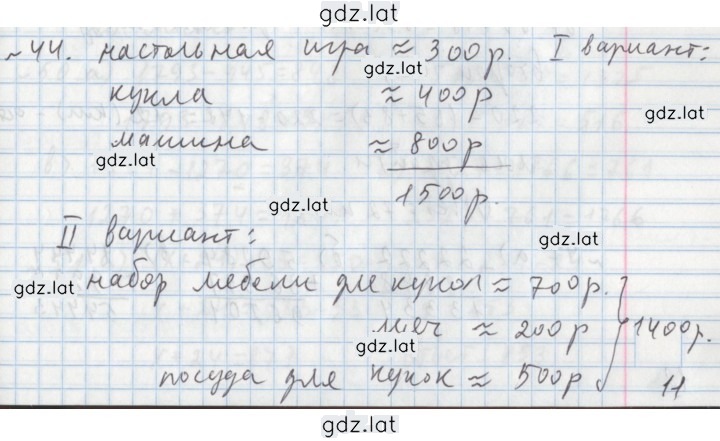 gdz.lat
№44. настольная игра ≈ 300р. I вариант:
gdz.lat
кукла ≈ 400р
gdz.lat
машина ≈ 800р
gdz.lat
1500р.
gdz.lat
II вариант:
gdz.lat
набор мебели для кукол ≈ 700р.
gdz.lat
мяч ≈ 200р 1400р.
gdz.lat
посуда для кукол ≈ 500р
11
gdz.lat